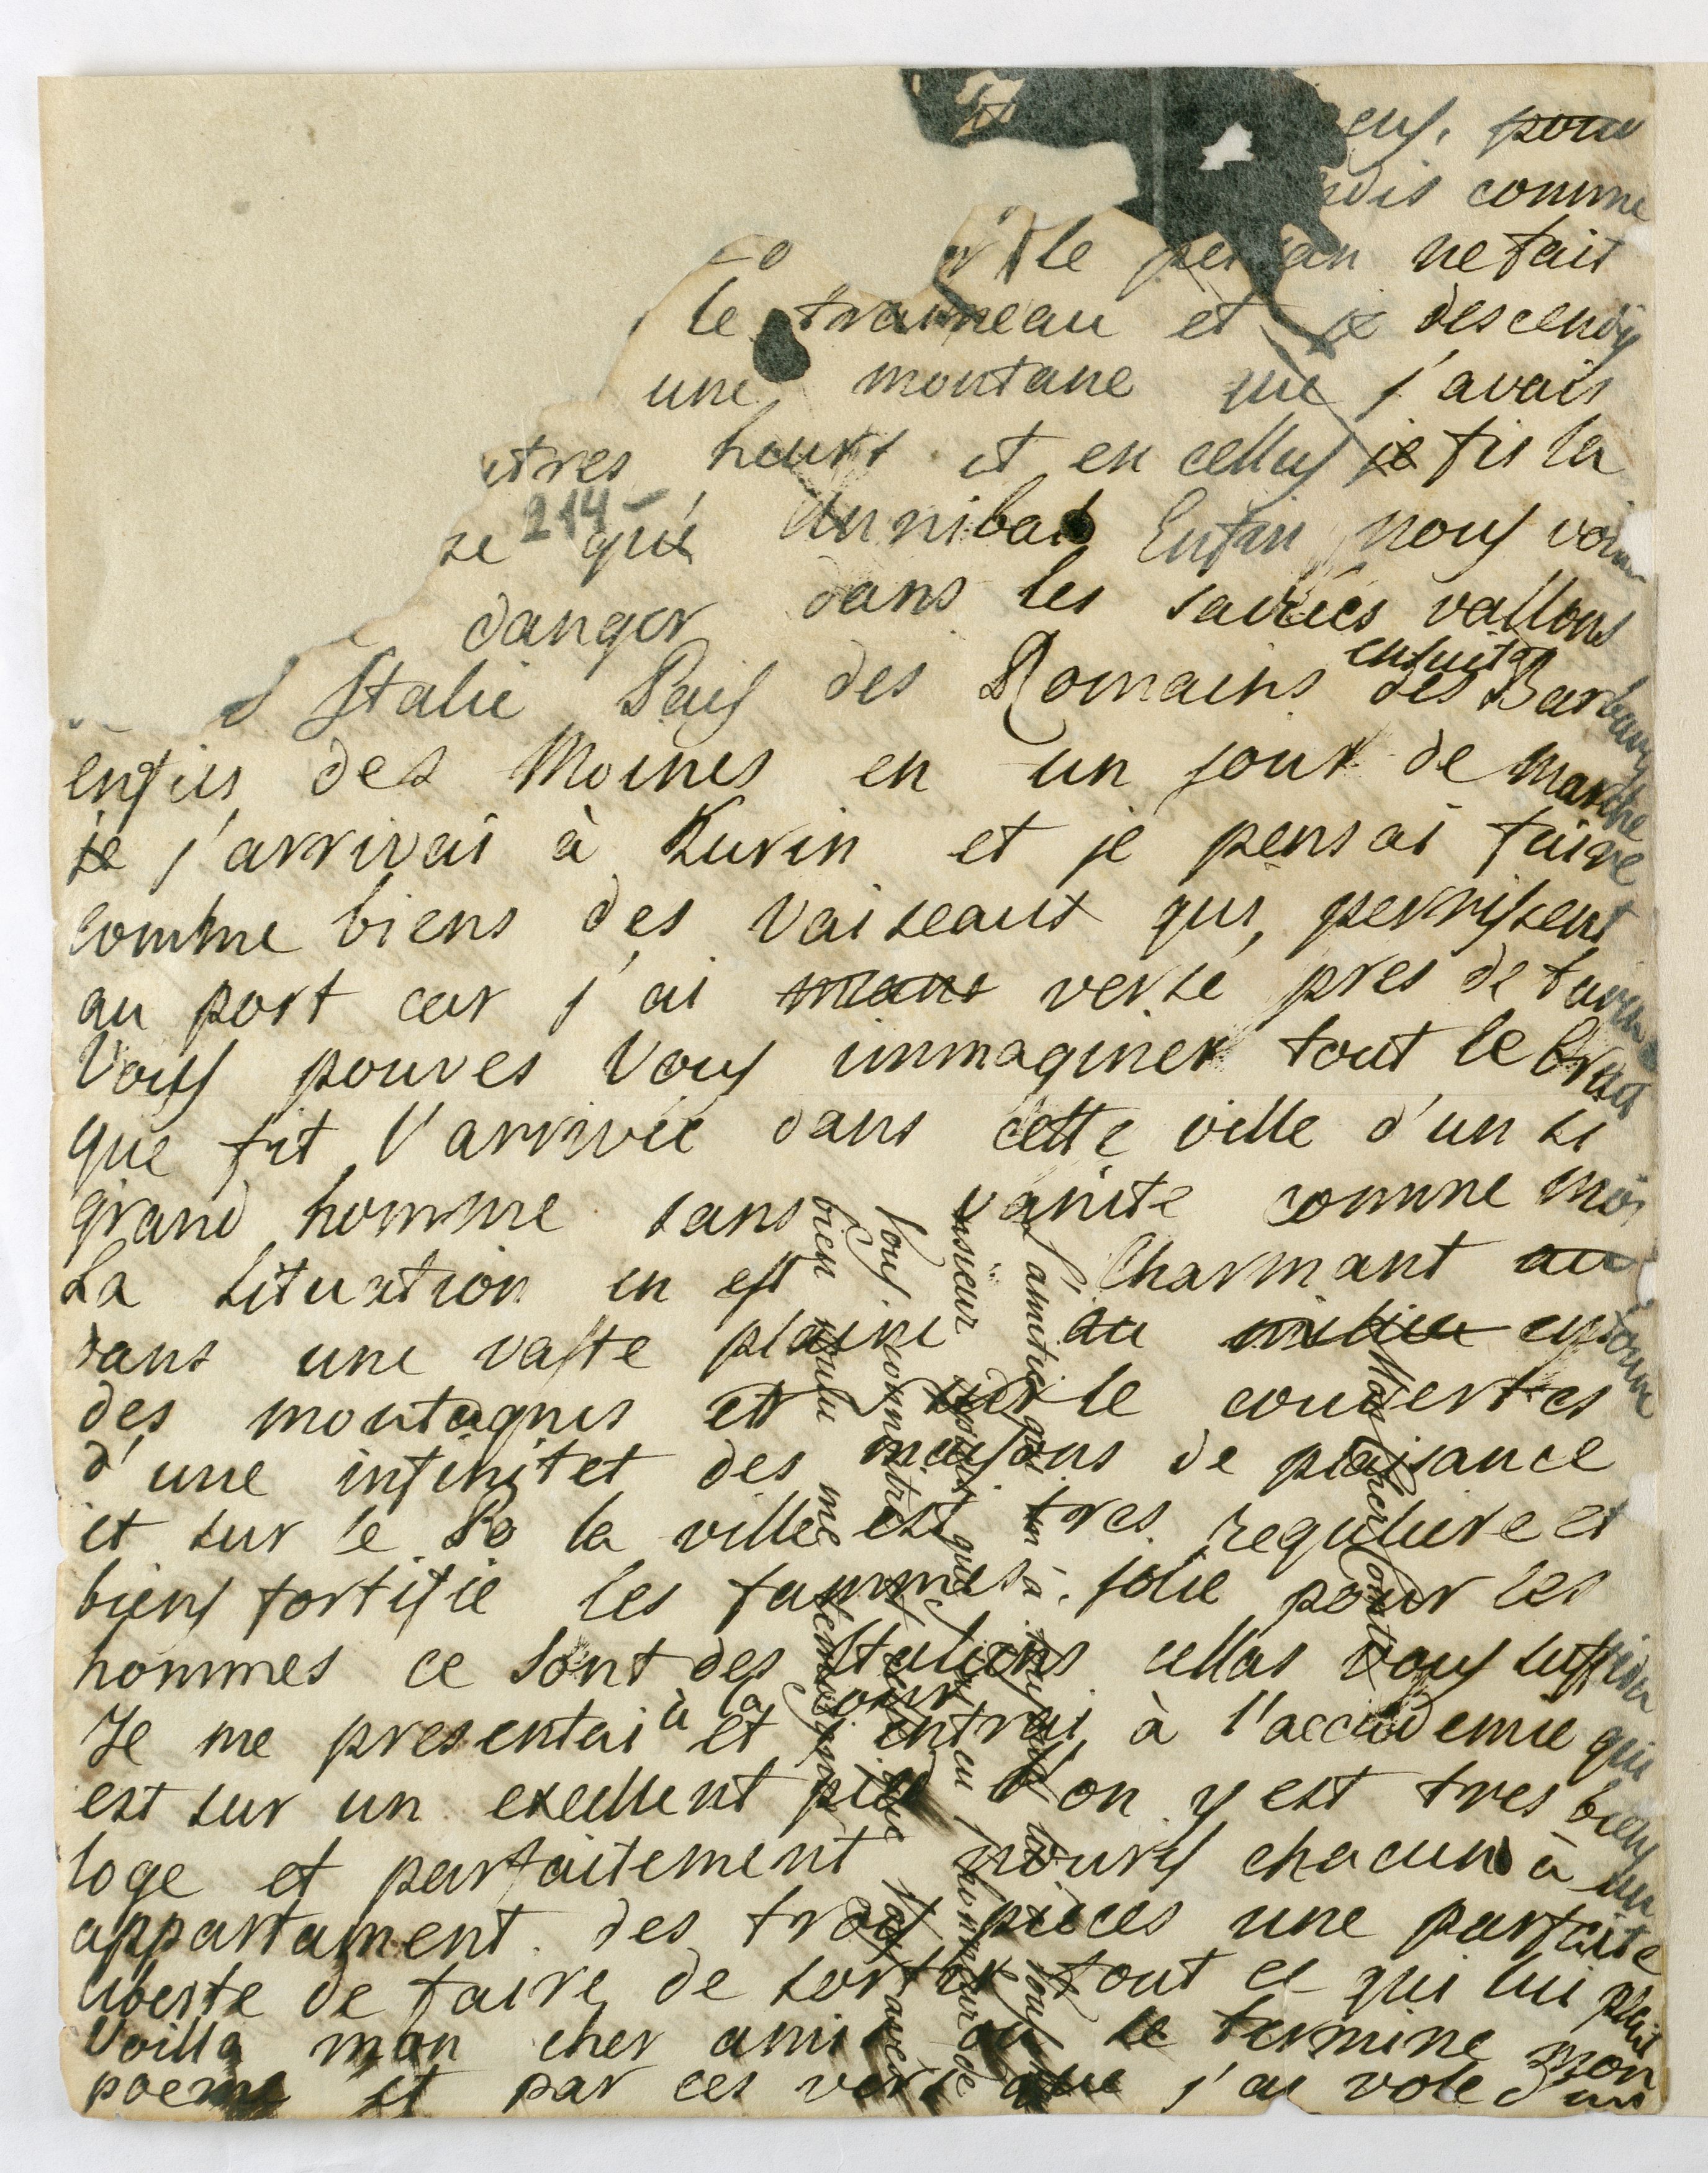 eus, pour
ndis comme
le persan ne fait
le traineau et je descendis
une montane que j'avais
utres heurs et en cellus je fis la
se qué Annibal Enfin nous
214-
danger dans les sacrées vallons
d Italie Pais des Romains ensuite des Barbares
enfies des Moines en un jour de marche
je j'arrivai à Turin et je pensai faire
comme biens des vaiseaux qui perrissent
au port car j'ai verse pres de turin
Vous pouves vous immaginer tout le bruit
que fit l'arrivée dans cette ville d'un si
grand homme sans vanite comme moi
La situation en est Charmant au
dans une vaste plaine au milieu
des montagnes et sur le couvertes
d'une infinitet des maisons de plaisance
et sur le Po la ville est tres reguliere et
biens fortifie les fammes jolie pour les
hommes ce sont des Italiens cellas vous suffira
Je me presentai à la cour et j'entrai à l'accademie qui
est sur un exellent pied l'on y est tres biens
loge et parfaitement nouris chacun à un
appartament des trois pieces une parfaite
liberte de faire de sortir tout ce qui lui plait
Voilla mon cher amis ou se termine mon
poeme et par ces vers que j'ai vole d'un
Mon cher Comte
l'amitié que
monsieur depuis que j'ai eu l'honneur de
vous connaitre avec
bien voulu me temoigner